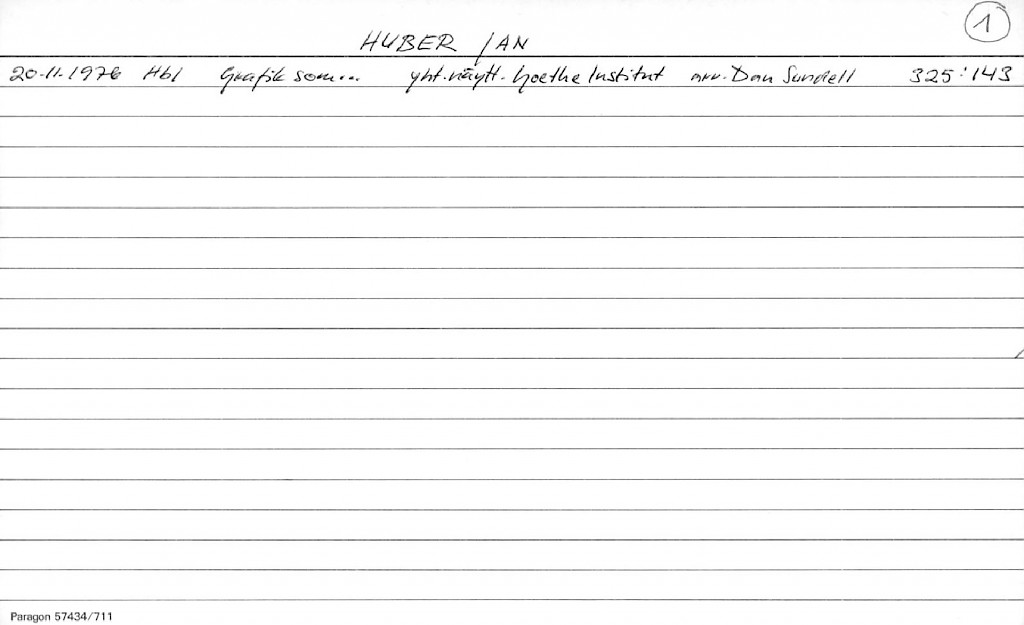 1
HUBER IAN
20.11.1976 Hbl Grafik som... yht.näytt. Goethe Institut arv. Dan Sundell 325:143
Paragon 57434/711